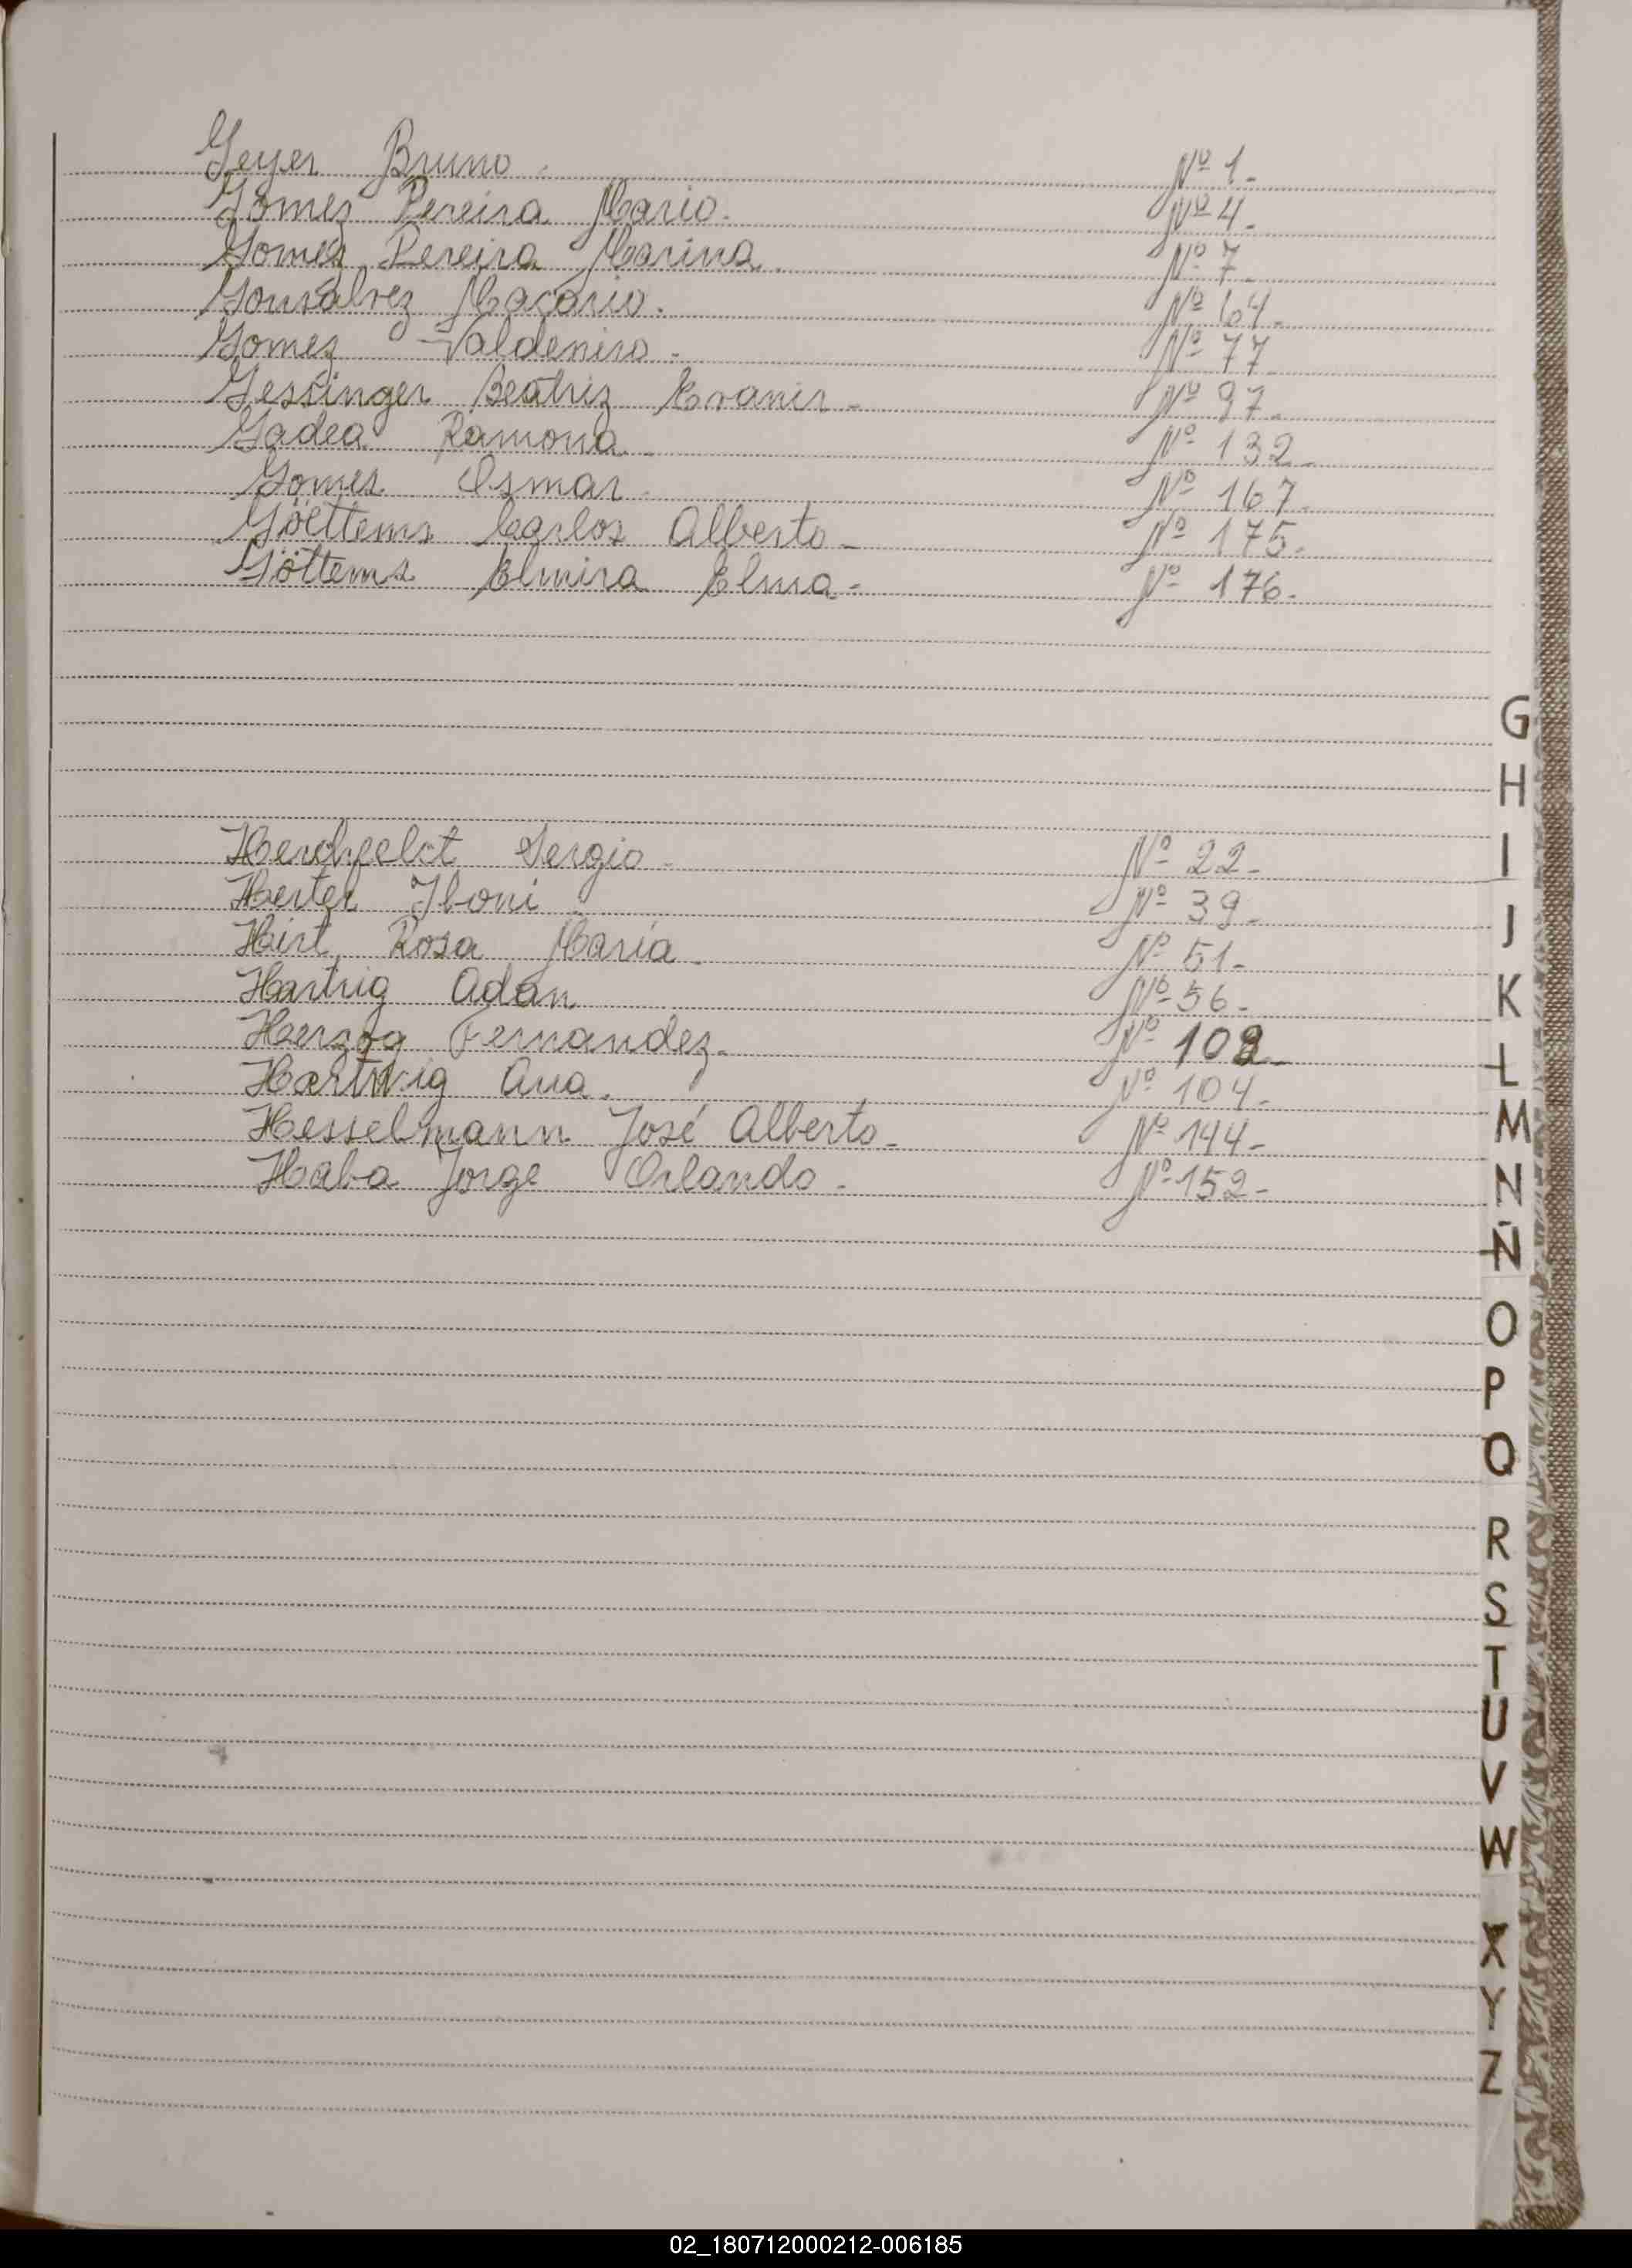 Geyer Bruno. Nº 1-
Gomez Pereira Mario. Nº 4-
Gomez Pereira Marina. Nº 7-
Gonsalvez Macario. Nº 64-
Gomez Valdeniro- Nº 77-
Gessinger Beatriz Evanir- Nº 97-
Gadea Ramona- Nº 132-
Gomes Osmar- Nº 167-
Göettems Carlos Alberto- Nº 175-
Göttems Elmira Elma- Nº 176-
Sergio- Nº 22-
Herter Iboni Nº 39-
Hirt Rosa Maria- Nº 51-
Hartvig Adan Nº 56-
Herzog Fernandez- Nº 102-
Hartwig Ana. Nº 104-
Hesselmann José Alberto- Nº 144-
Haba Jorge Orlando- Nº 152-
G
H
I
J
K
L
M
N
Ñ
O
P
Q
R
S
T
U
V
W
X
Y
Z
02_180712000212-006185